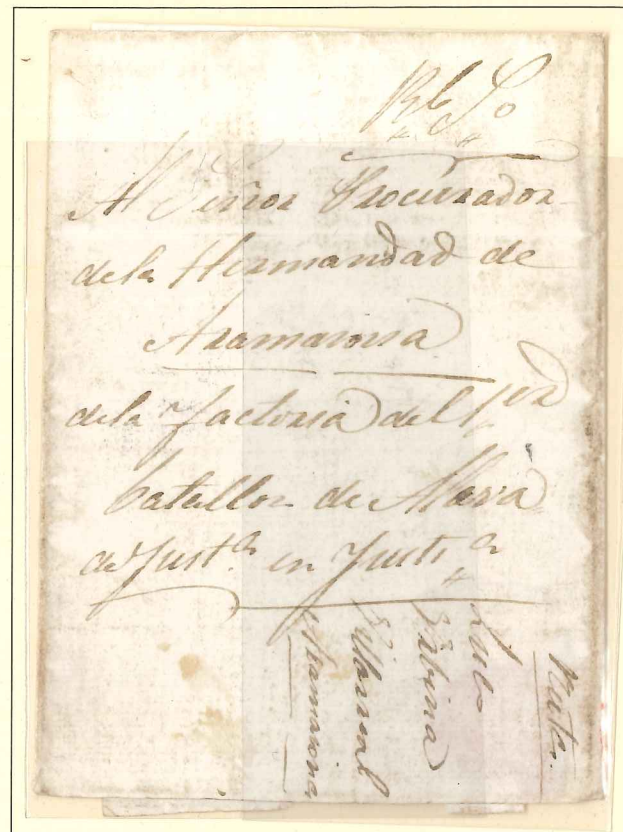 Rl So
Al Señor Procurador
dela Hermandad de
Aramaiona
dela factoria del 1.er
batallon de Alava
de Just.a en Just.a
Ruta
Luco
Urbina
Villarreal
Aramaiona